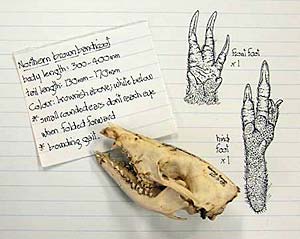 Northern brown bandicoot
body length: 300-400mm
tail length: 130mm - 170mm
Colour: brownish above; white below
* small rounded ears don't reach eye
when folded forward
* bounding gait.
Front foot
x 1
hind
foot
x 1